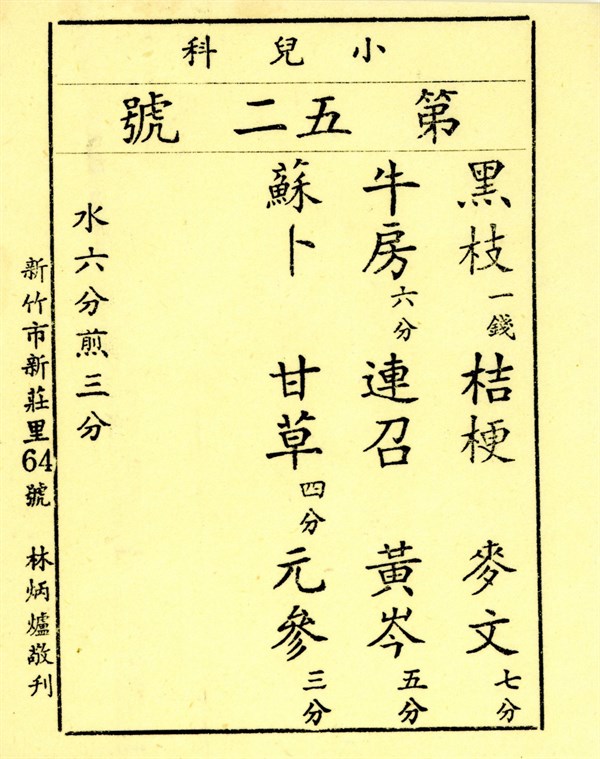 小兒科
第五二號
黑枝一錢 桔梗 麥文七分
牛房六分 連召 黃岑五分
蘇卜 甘草四分 元參三分
水六分煎三分
新竹市新莊里64號 林炳爐敬刊